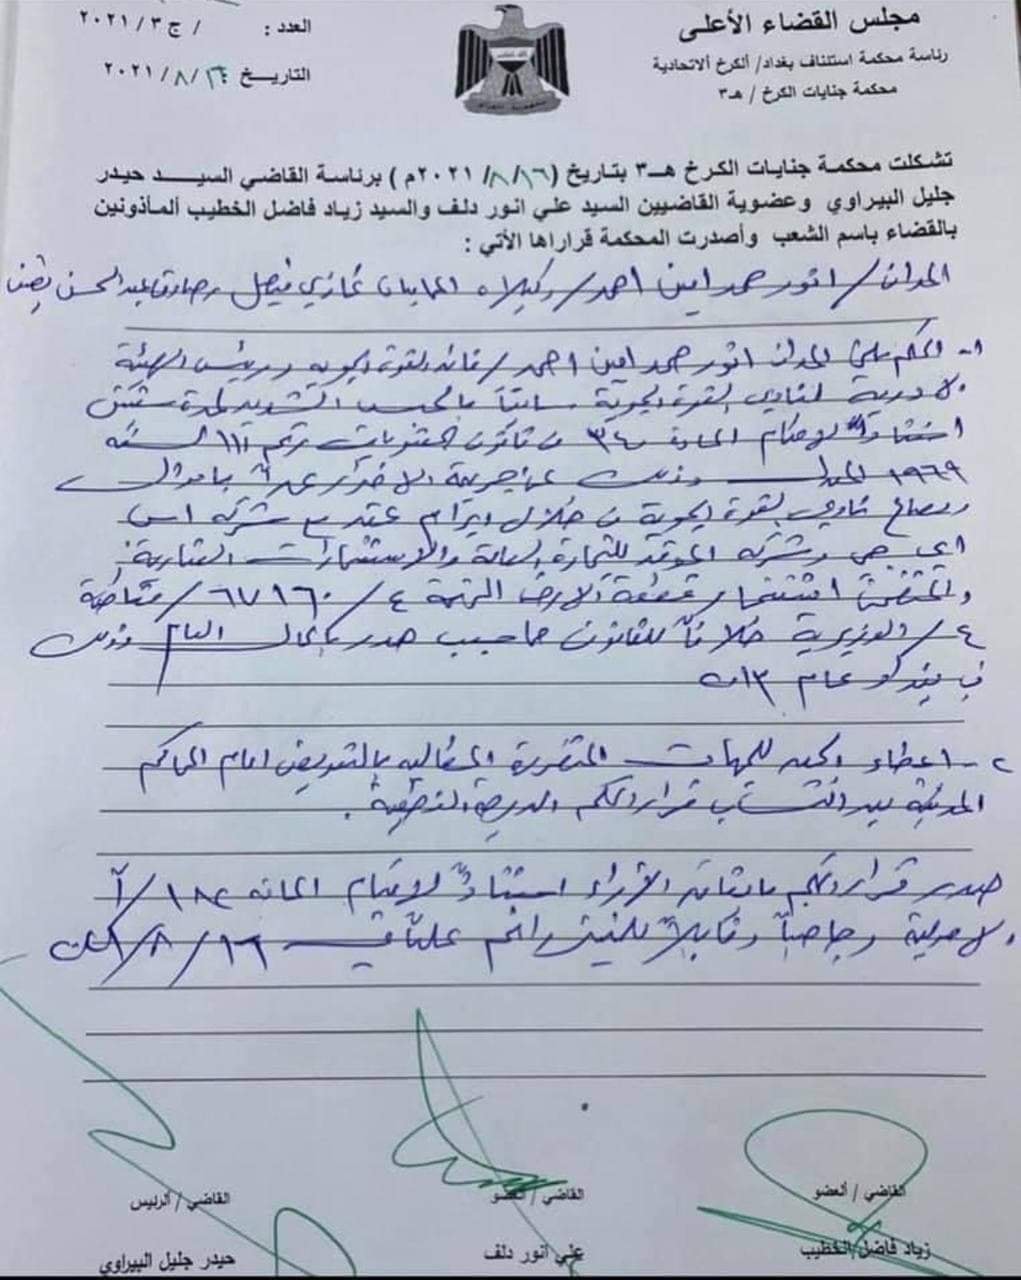 مجلس القضاء الأعلى
رئاسة محكمة استئناف بغداد/ ألكرخ ألاتحادية
محكمة جنايات الكرخ / هـ٣
العدد : / ج ٣ / ٢٠٢١
التاريخ ٢٠٢١/٨/
تشكلت محكمة جنايات الكرخ هـ٣ بتاريخ (٢٠٢١/٨/١٦م) برئاسة القاضي السيد حيدر
جليل البيراوي وعضوية القاضيين السيد علي انور دلف والسيد زياد فاضل الخطيب ألمأذونين
بالقضاء باسم الشعب وأصدرت المحكمة قراراها الأتي :
المدان / انور حمد امين احمد / وكيلاه المحاميان غازي فيصل
١- الحكم على المدان انور حمد امين احمد / قائد القوة الجوية ورئيس الهيئة
الادارية لنادي القوة الجوية سابقاً بالحبس الشديد لمدة سنتين
استناداً لاحكام المادة ٣٤٠ من قانون العقوبات رقم ١١١ لسنة
١٩٦٩ المعدل وذلك عن جريمة الاضرار عمداً باموال
ومصالح نادي القوة الجوية من خلال ابرام عقد مع شركة اس
اي جي وشركة للتجارة العامة والاستثمارات العقارية
والمتضمن استثمار قطعة الارض المرقمة ٤ / ٦٧١٦٠ / مقاطعة
٤ / الوزيرية خلافاً للقانون مما سبب هدر بالمال العام وذلك
في بغداد عام
٢- اعطاء الحق للجهات المتضررة المطالبة بالتعويض امام المحاكم
المدنية بعد اكتساب قرار الحكم الدرجة القطعية.
صدر قرار الحكم باتفاق الأراء استناداً لاحكام المادة ١٨٢/أ
الاصولية وجاهياً وقابلاً للتمييز وافهم علناً في ١٦ / ٨ /
القاضي / ألعضو
زياد فاضل الخطيب
القاضي / العضو
علي انور دلف
القاضي / ألرئيس
حيدر جليل البيراوي